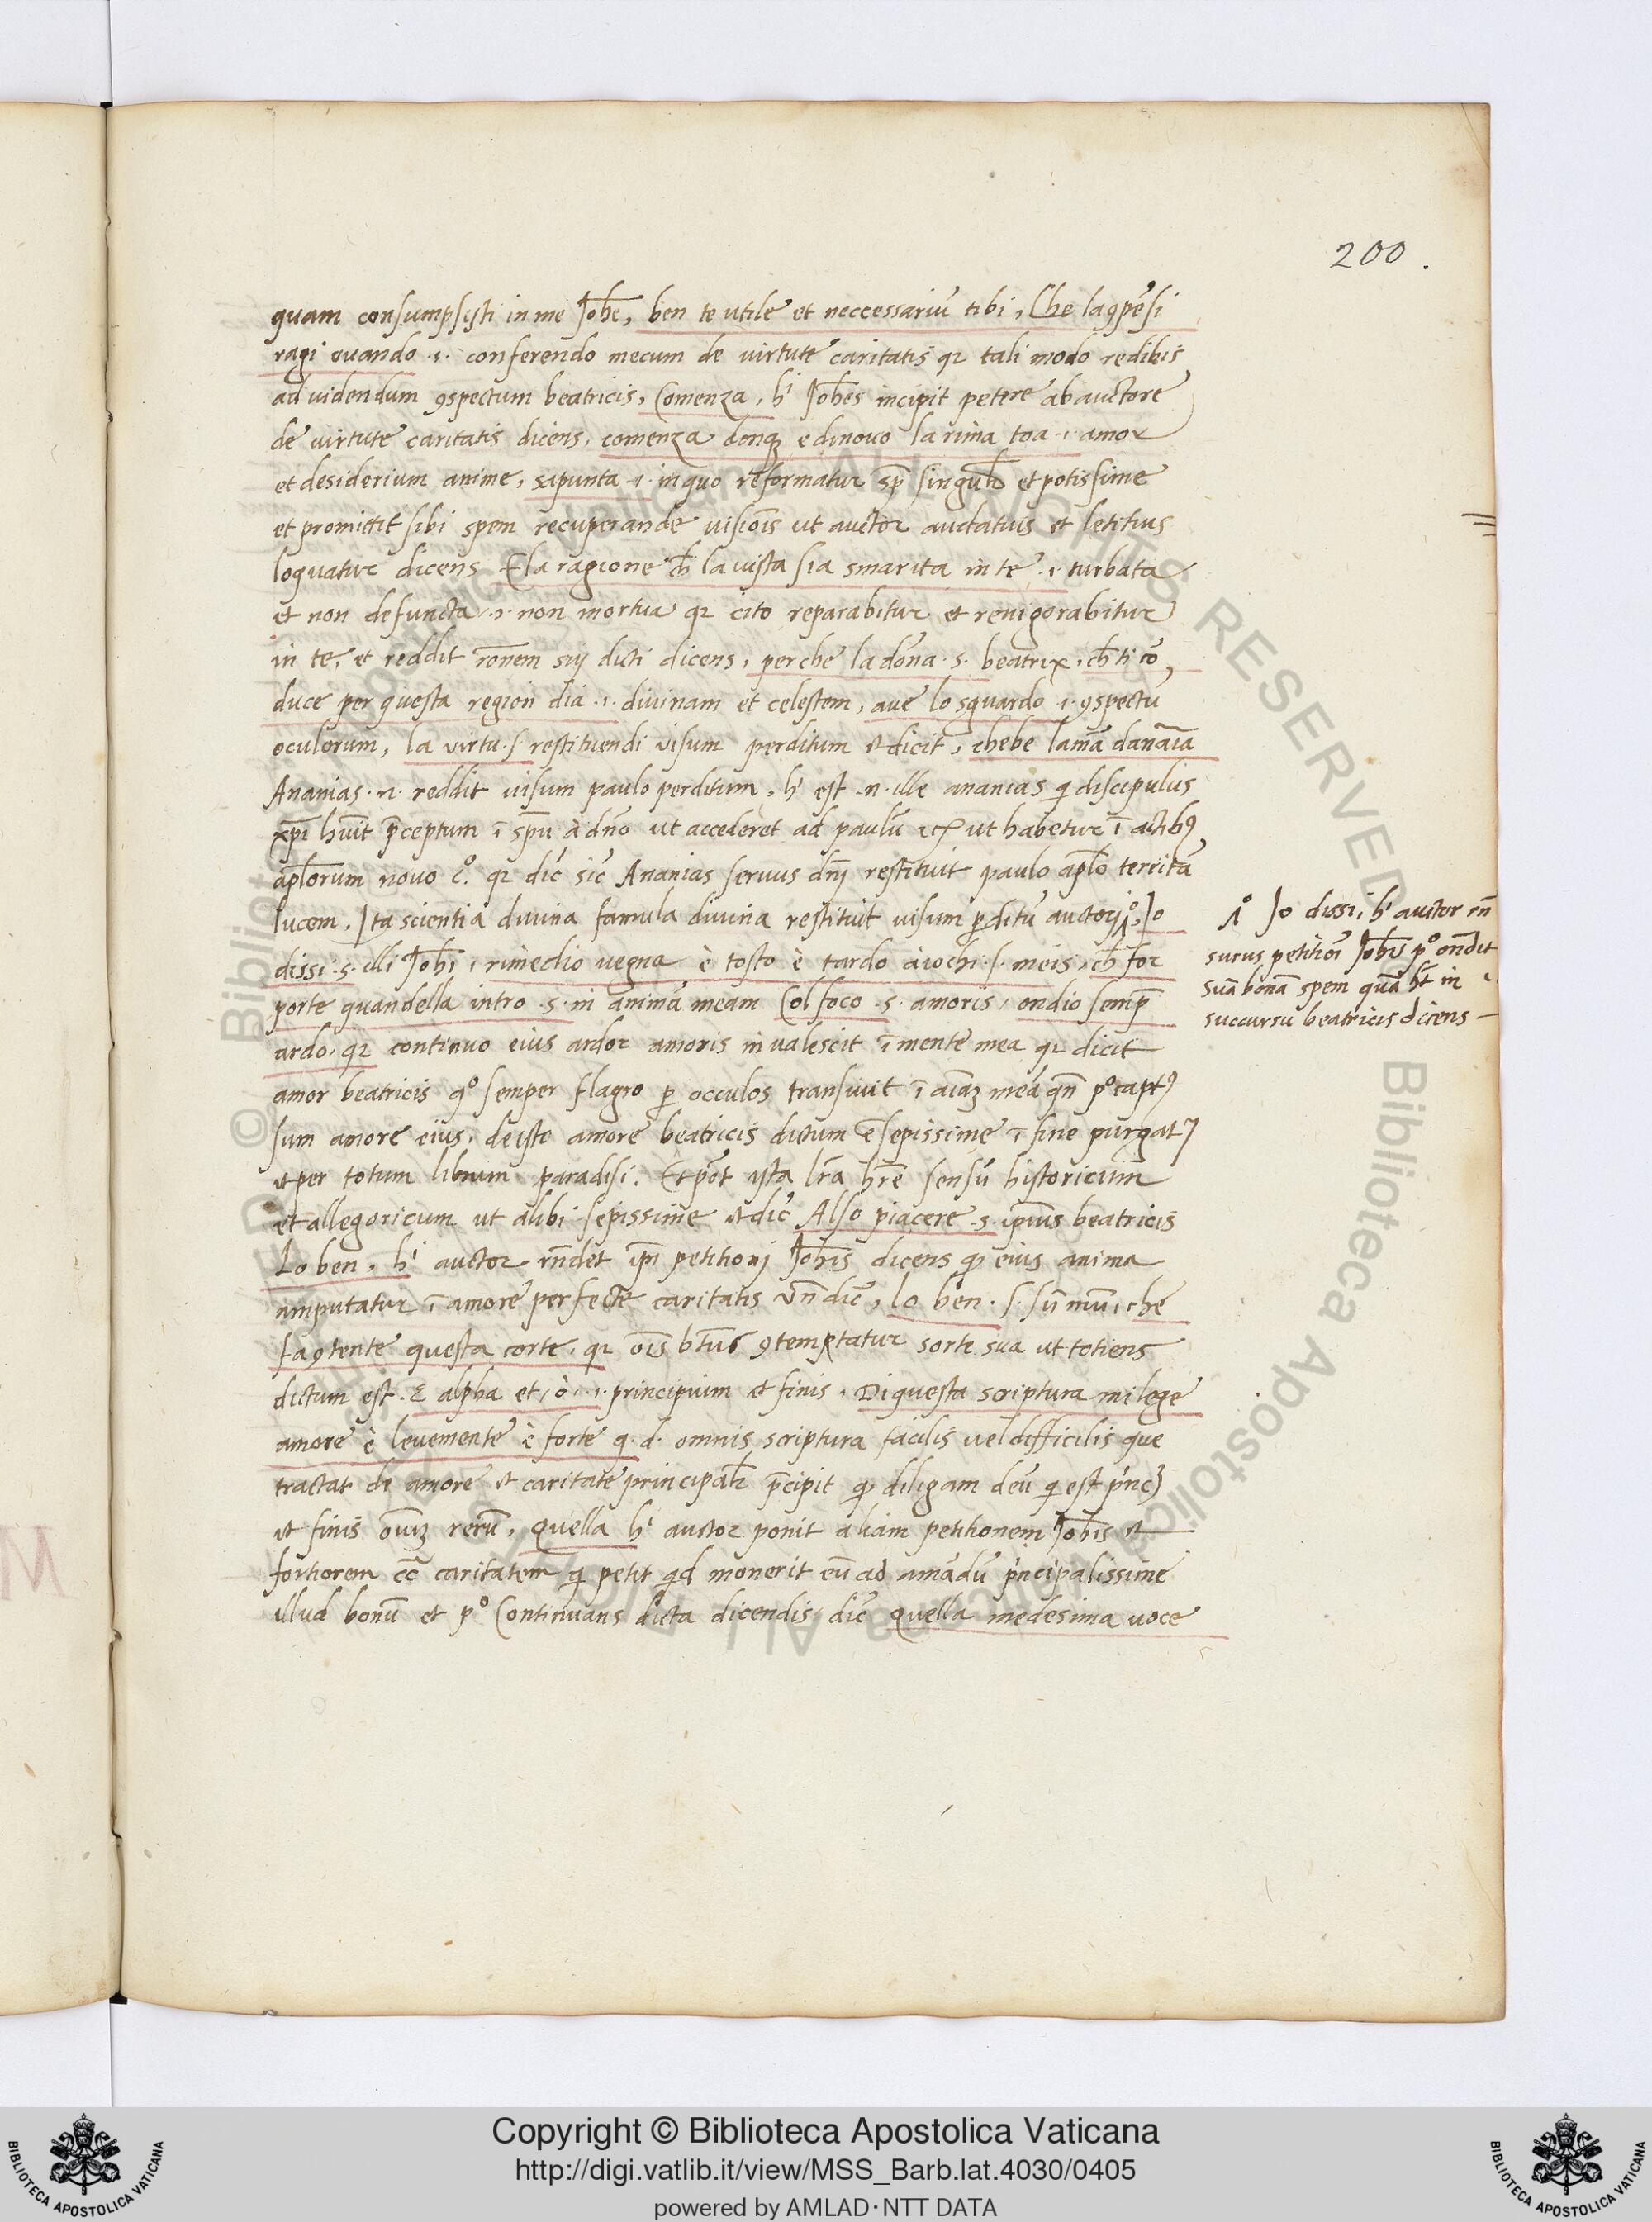 200.
quam consumpsisti in me Joħe, ben te utile et neccessariū tibi, Che la ꝯpēsi
ragi ouando .i. conferendo mecum de virtute caritatis qr tali modo redibis
ad videndum ꝯspectum beatricis, Comenza, h' Joħes incipit petere ab auctore
de virtute caritatis dicens, comenza donq e dinouo la rima toa .i. amor
et desiderium anime, sapunta .i. in quo reformatur sp̄ singulr̄ et potissime
et promittit sibi spem recuperande visiōis ut auctor audatius et letitius
loquatur dicens E la ragione ch̄ la uista sia smarita in te .i. turbata
et non defuncta .i. non mortua qr cito reparabitur et reuigorabitur
in te, et reddit rōnem sui dicti dicens, perche la dōna .s. beatrix, ch̄ ti cō
duce per questa region dia .i. diuinam et celestem, aue lo sguardo .i. ꝯspectū
oculorum, la virtu .s. restituendi visum perditum et dicit, chebe lamā danāia
Ananias .n. reddit uisum paulo perditum, h' est .n. ille ananias q discipulus
xp̄i huit p̄ceptum ī spu à dn̄o ut accederet ad paulū ut habetur ī actibꝰ
apl̄orum nouo c°. qr dic̄ sic̄ Ananias seruus dn̄i restituit paulo apl̄o territā
lucem. Ita scientia diuina famula diuina restituit uisum ꝑditū auctori, Jo
dissi .s. illi Joħi, rimedio uegna è tosto è tardo à iochi .s. meis, ch̄ for
porte quandella intro .s. in animā meam Col foco .s. amoris, ondio semp̄
ardo, qr continuo eius ardor amoris inualescit ī mente mea qr dicit
amor beatricis q° semper flagro ꝑ occulos transiuit ī aīaz meā qn̄ p° captꝰ
sum amore eius, de isto amore beatricis dictum ē sepissime ī fine purgat
et per totum librum paradisi. Et pōt ista lr̄a hr̄e sensū historicum
et allegoricum ut alibi sepissime et dic̄ Also piacere .s. ip̄ius beatricis
Lo ben, h' auctor rn̄det ip̄i petitioni Joħis dicens qꝫ eius anima
amputatur ī amore perfecte caritatis vn̄ dic̄, lo ben .s. sūmū, che
fa ꝯtente questa corte, qr ōis btūs ꝯtemptatur sorte sua ut totiens
dictum est. E alpha et ò .i. principium et finis, Di questa scriptura mi lege
amore è leuemente è forte q.d. omnis scriptura facilis uel difficilis que
tractat de amore et caritate principalr̄ p̄cipit qꝫ diligam deū q est prīc
et finis ōium rerū, Quella h' auctor ponit aliam petitionem Joħis et
fortiorem cc̄ caritatem q petit qd monerit eū ad amādū prīncipalissime
illud bonū et p° Continuans dicta dicendis dic̄ Quella medesima uoce
Jo dissi, h' auctor rn̄
surus petitiōi Joħis p° on̄dit
suā bonā spem quā ht̄ in
succursū beatricis dicens
Copyright © Biblioteca Apostolica Vaticana
http://digi.vatlib.it/view/MSS_Barb.lat.4030/0405
powered by AMLAD·NTT DATA
BIBLIOTECA APOSTOLICA VATICANA
BIBLIOTECA APOSTOLICA VATICANA